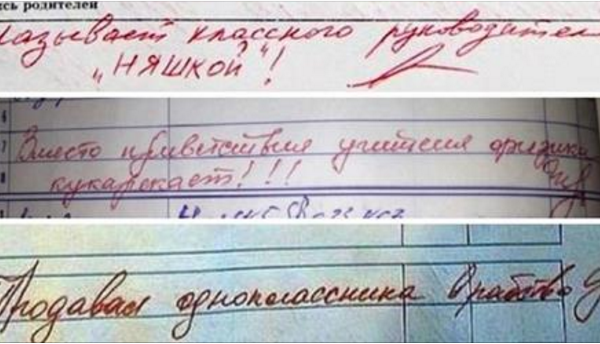 сь родителей
называет классного руководител
„НЯШКОЙ"!
6
7
Вместо приветствия учителя физики
8
кукарекает!!!
Продавал одноклассника в рабство